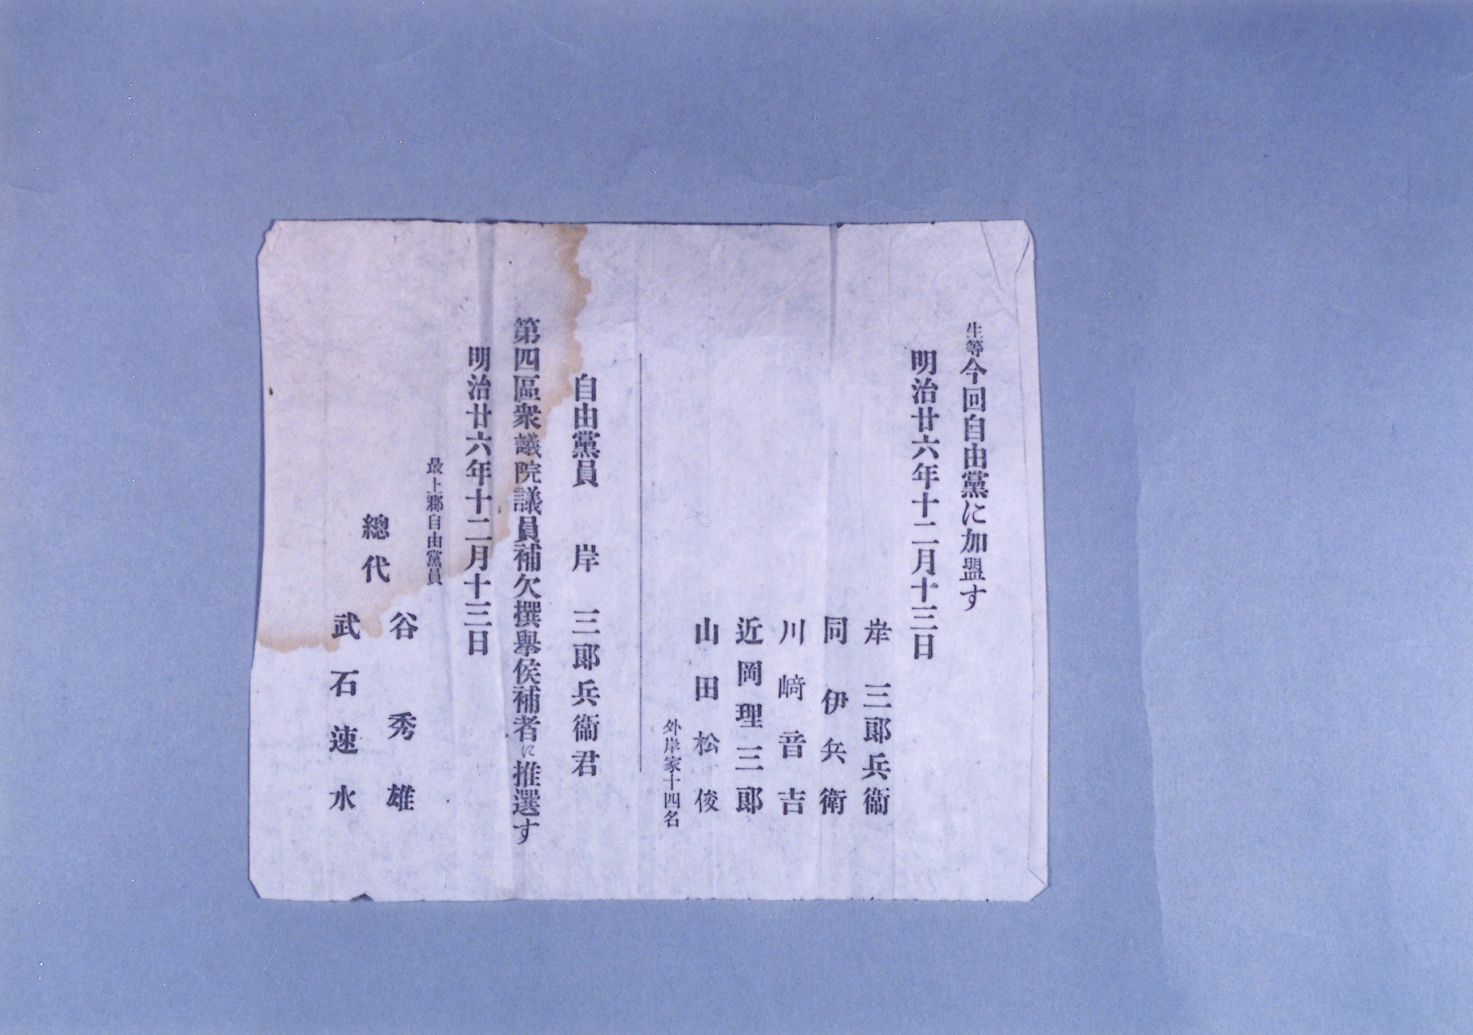 生等今回自由黨に加盟す
明治廿六年十二月十三日
岸 三郞兵衞
同 伊兵衛
川﨑音吉
近岡理三郞
山田松俊
外岸家十四名
自由黨員 岸 三郞兵衞君
第四區衆議院議員補欠撰擧侯補者に推選す
明治廿六年十二月十三日
最上郡自由黨員
總代
谷 秀雄
武石速水